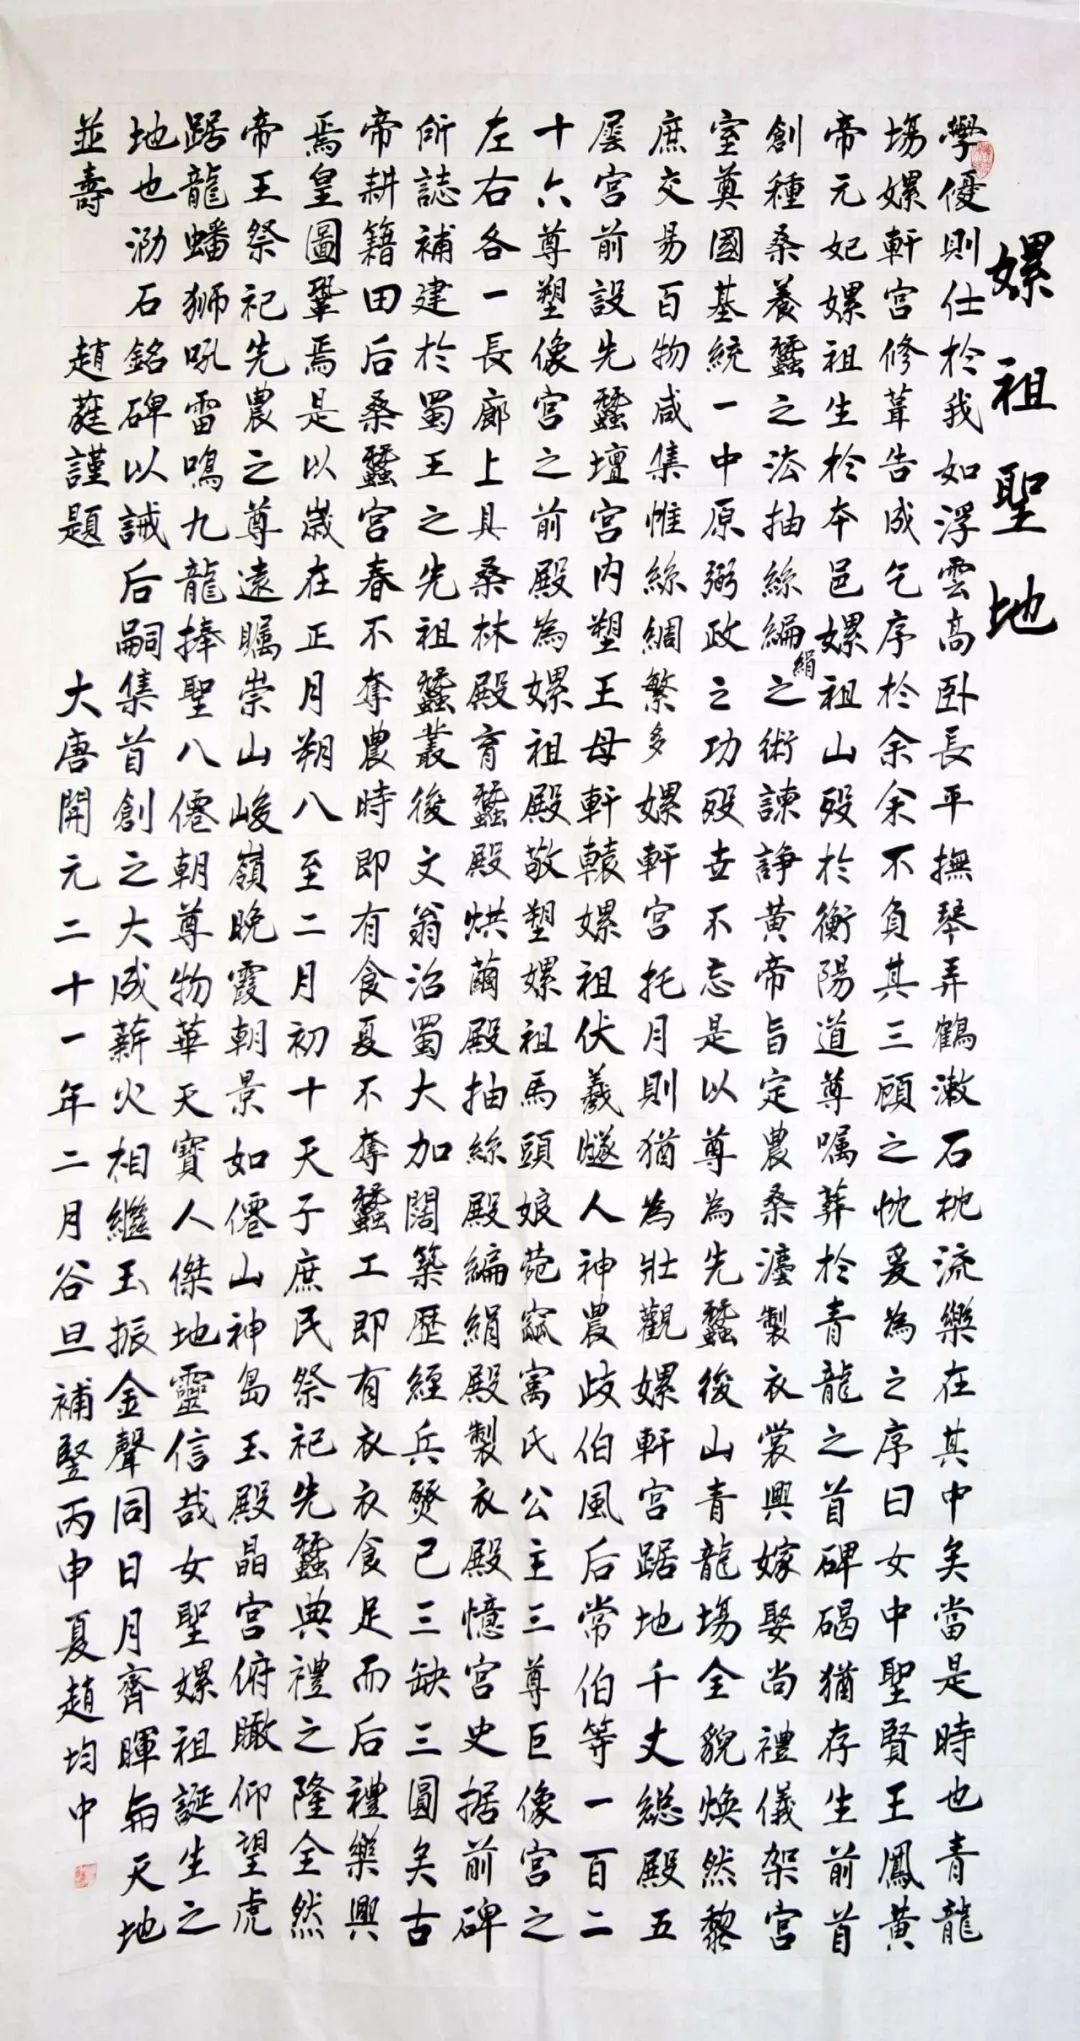 嫘祖聖地
學優則仕於我如浮雲高卧長平撫琴弄鶴漱石枕流樂在其中矣當是時也青龍
塲嫘軒宮修葺告成乞序於余余不負其三顧之忱爰為之序曰女中聖賢王鳳黃
帝元妃嫘祖生於本邑嫘祖山歿於衡陽道尊囑葬於青龍之首碑碣猶存生前首
創種桑養蠶之法抽絲編絹之術諫諍黃帝旨定農桑灋製衣裳興嫁娶尚禮儀架宮
室奠國基統一中原弼政之功歿世不忘是以尊為先蠶後山青龍塲全貌煥然黎
庶交易百物咸集惟絲綢繁多嫘軒宮托月則猶為壯觀嫘軒宮踞地千丈總殿五
層宮前設先蠶壇宮内塑王母軒轅嫘祖伏羲燧人神農歧伯風后常伯等一百二
十六尊塑像宮之前殿為嫘祖殿敬塑嫘祖馬頭娘菀窳寓氏公主三尊巨像宮之
左右各一長廊上具桑林殿育蠶殿烘繭殿抽絲殿編絹殿製衣殿憶宮史据前碑
所誌補建於蜀王之先祖蠶叢後文翁治蜀大加闊築歷經兵燹已三缺三圓矣古
帝耕籍田后桑蠶宮春不奪農時即有食夏不奪蠶工即有衣衣食足而后禮樂興
焉皇圖鞏焉是以歲在正月朔八至二月初十天子庶民祭祀先蠶典禮之隆全然
帝王祭祀先農之尊遠矚崇山峻嶺晚霞朝景如僊山神島玉殿晶宮俯瞰仰望虎
踞龍蟠獅吼雷鳴九龍捧聖八僊朝尊物華天寶人傑地靈信哉女聖嫘祖誕生之
地也泐石銘碑以誡后嗣集首創之大成薪火相繼玉振金聲同日月齊暉與天地
並壽 趙蕤謹題 大唐開元二十一年二月谷旦補豎丙申夏趙均中